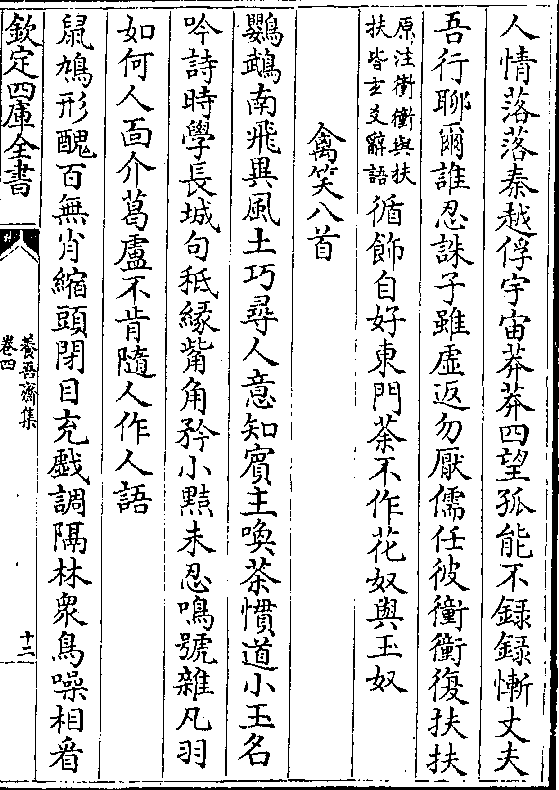 人情落落秦越俘宇宙莽莽四望孤能不録録慚丈夫
吾行聊爾誰忍誅子雖虛返勿厭儒任彼衝衝復扶扶
原注衝衝與扶
扶皆玄文辭語
循飾自好東門荼不作花奴與玉奴
禽笑八首
鸚鵡南飛異風土巧尋人意知賓主喚茶慣道小玉名
吟詩時學長城句秪緣觜角矜小黠未忍鳴號雜凡羽
如何人面介葛盧不肯隨人作人語
鼠鳩形醜百無肖縮頭閉目充戲調隔林衆鳥噪相看
欽定四庫全書
養吾齋集
卷四
十二